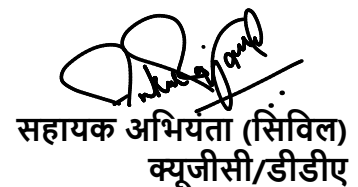 सहायक अभियंता (सिविल)
क्यूजीसी/डीडीए